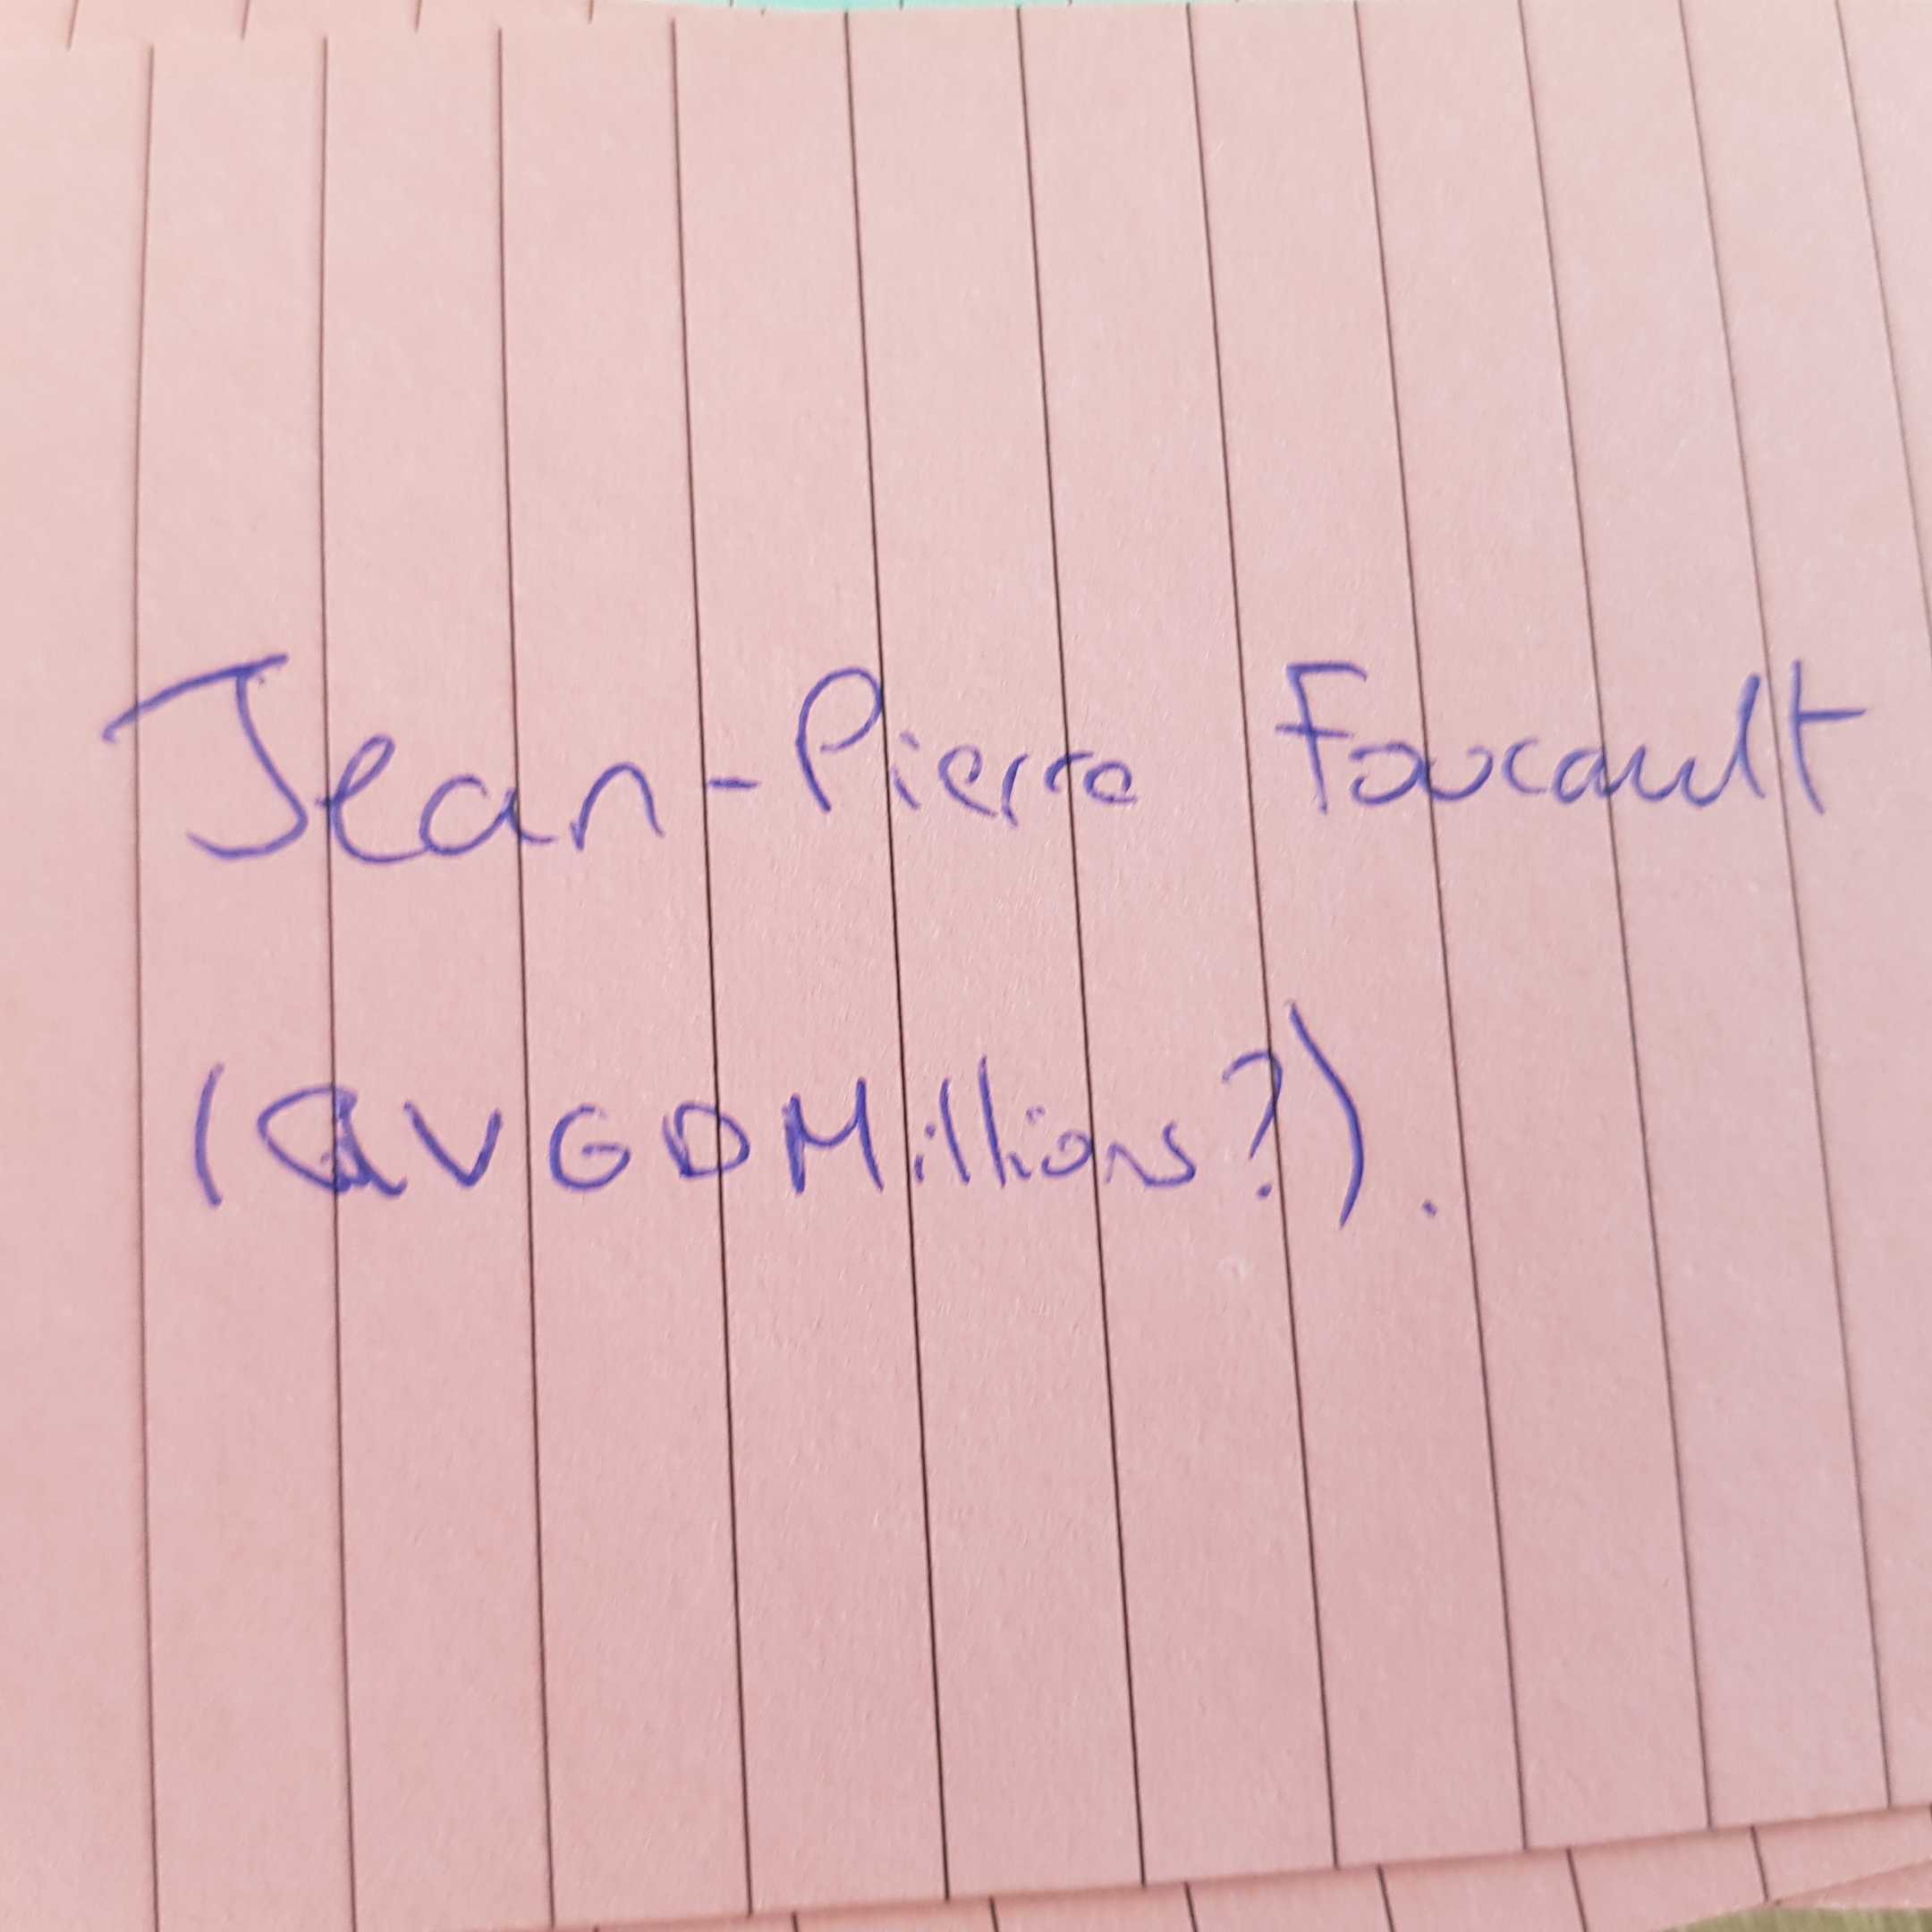 Jean-Pierre Foucault
(QVGDMillions?).